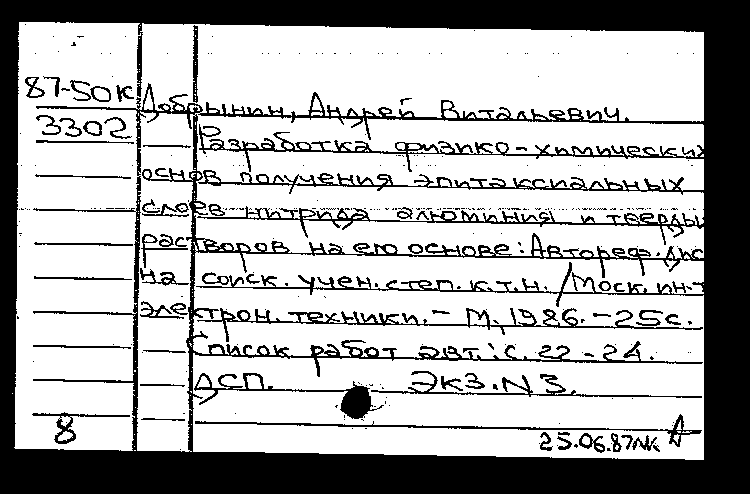 87-50к Добрынин, Андрей Витальевич.
3302 Разработка физико-химических
основ получения эпитаксиальных
слоев нитрида алюминия и тверды
растворов на его основе: Автореф. дис
на соиск. учен. степ. к.т.н. / Моск. ин-т
электрон. техники. - М., 1986. - 25с.
Список работ авт.: с. 22 - 24.
ДСП. Экз. N 3.
8 25.06.87